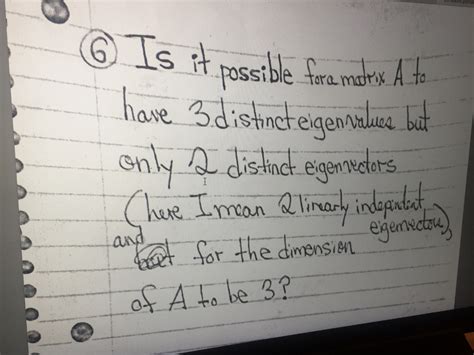 ⑥ Is it possible for a matrix A to
have 3 distinct eigenvalues but
only 2 distinct eigenvectors
(here I mean 2 linearly independent
eigenvectors)
and for the dimension
of A to be 3?